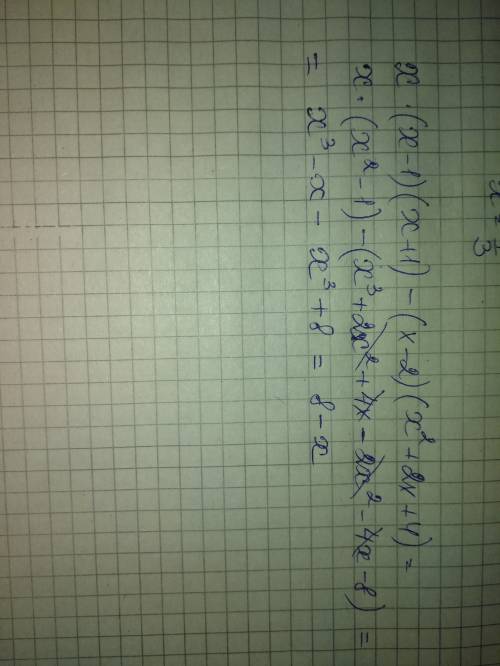 x = 1/3
x · (x-1)(x+1) - (x-2)(x² + 2x + 4) =
x · (x² - 1) - (x³ + 2x² + 4x - 2x² - 4x - 8) =
= x³ - x - x³ + 8 = 8 - x